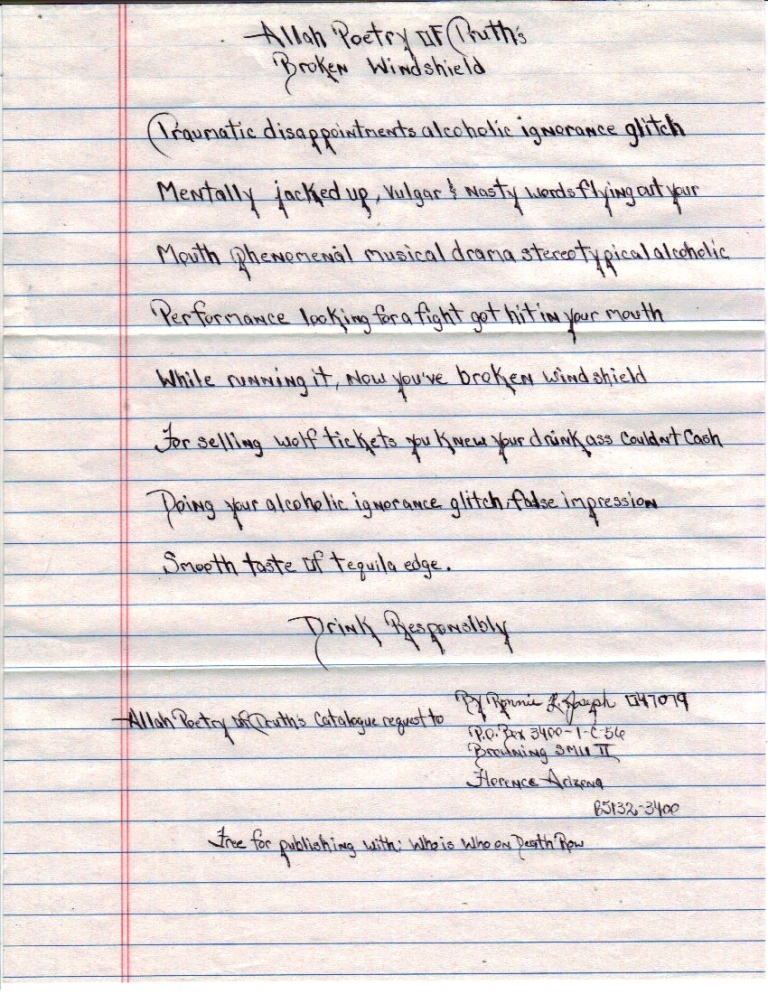 Allah Poetry Of Truth's
Broken Windshield
Traumatic disappointments alcoholic ignorance glitch
Mentally jacked up, vulgar & nasty words flying out your
Mouth phenomenal musical drama stereotypical alcoholic
Performance looking for a fight got hit in your mouth
While running it, now you've broken windshield
For selling wolf tickets you knew your drunk ass couldn't cash
Doing your alcoholic ignorance glitch false impression
Smooth taste of tequila edge.
Drink Responsibly
By Ronnie L. Joseph 047079
Allah Poetry Of Truth's Catalogue request to
P.O. Box 3400-1-C-56
Browning SMU II
Florence Arizona
85132-3400
Free for publishing with: Who is Who on Death Row